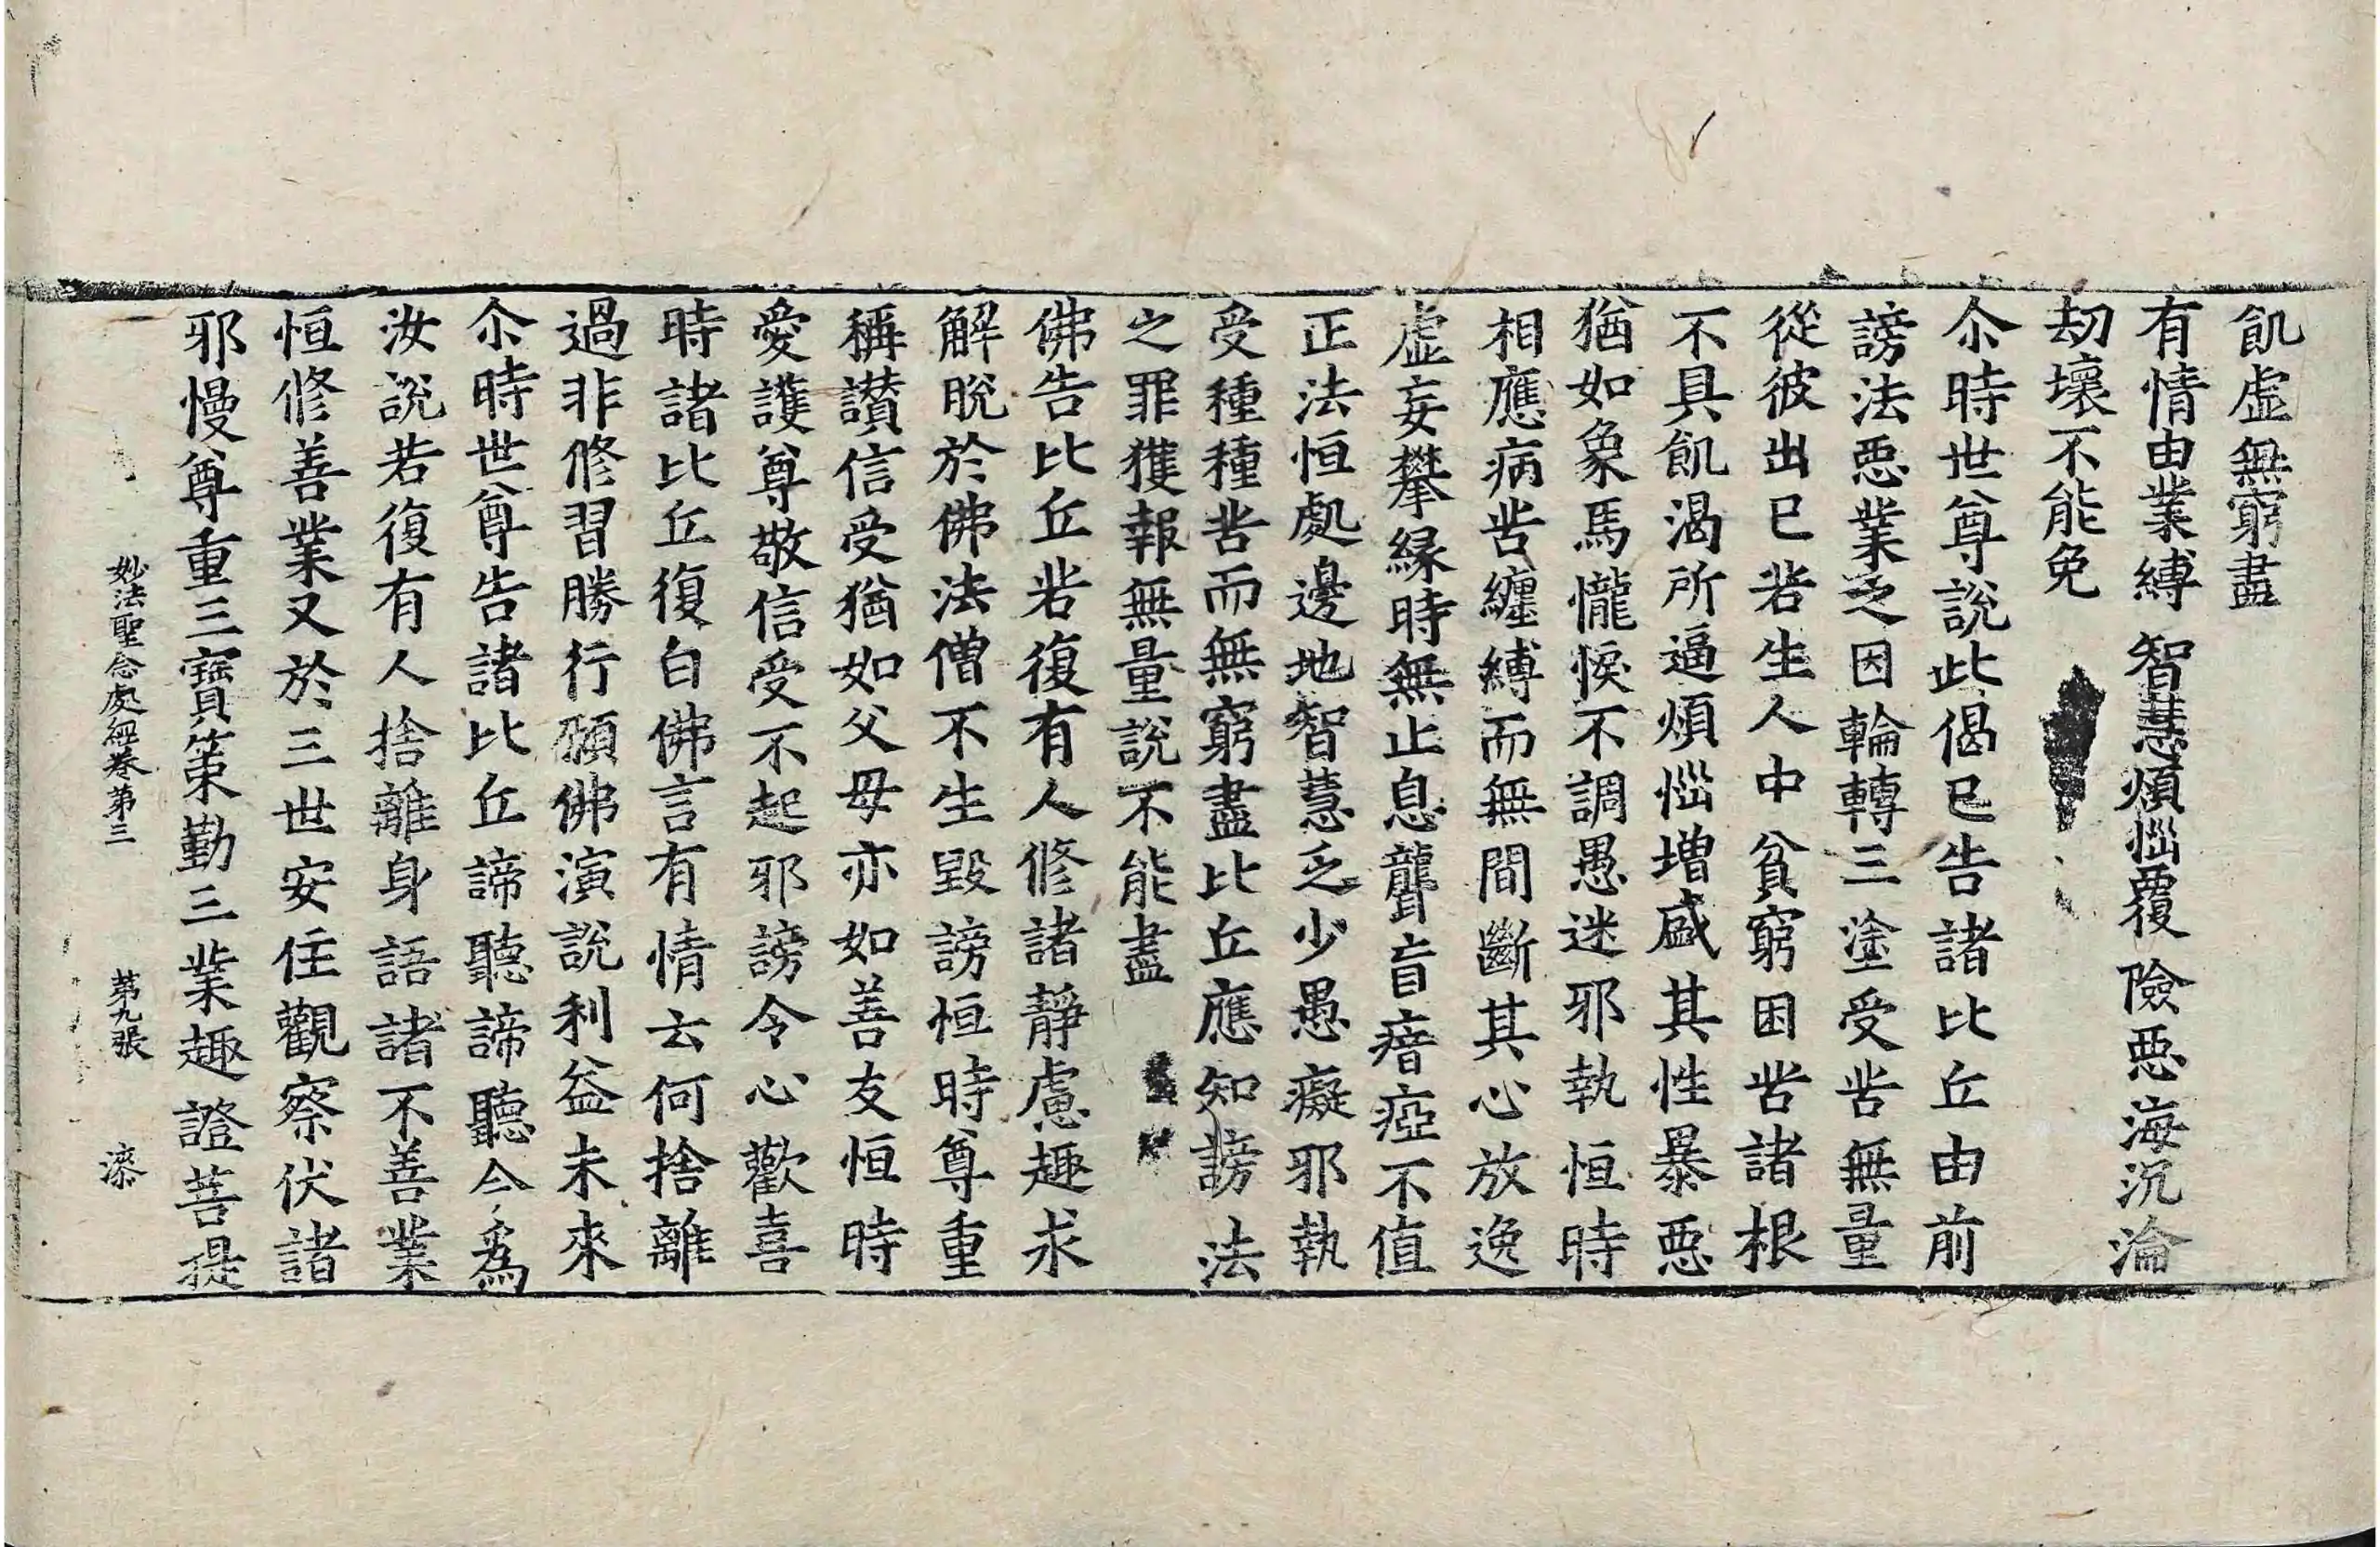 飢虛無窮盡
有情由業縛　智慧煩惱覆　險惡海沉淪
劫壞不能免
尒時世尊說此偈已告諸比丘由前
謗法惡業之因輪轉三塗受苦無量
從彼出已若生人中貧窮困苦諸根
不具飢渴所逼煩惱增盛其性暴惡
猶如象馬㦕悷不調愚迷邪執恒時
相應病苦纏縛而無間斷其心放逸
虛妄攀緣時無止息聾盲瘖瘂不值
正法恒處邊地智慧乏少愚癡邪執
受種種苦而無窮盡比丘應知謗法
之罪獲報無量說不能盡
佛告比丘若復有人修諸靜慮趣求
解脫於佛法僧不生毀謗恒時尊重
稱讃信受猶如父母亦如善友恒時
愛護尊敬信受不起邪謗令心歡喜
時諸比丘復白佛言有情云何捨離
過非修習勝行願佛演說利益未來
尒時世尊告諸比丘諦聽諦聽今為
汝說若復有人捨離身語諸不善業
恒修善業又於三世安住觀察伏諸
邪慢尊重三寶策勤三業趣證菩提
妙法聖念處經卷第三　第九張　漆